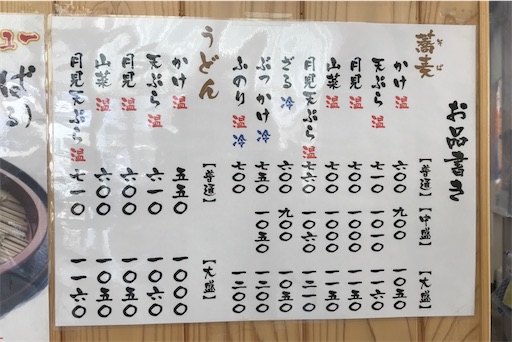 お品書き
【普通】【中盛】【大盛】
蕎麦
そば
かけ 温 六〇〇 九〇〇 一〇五〇
天ぷら 温 七一〇 一〇一〇 一一六〇
月見 温 七〇〇 一〇〇〇
山菜 温 七〇〇 一〇〇〇
月見天ぷら 温 七六〇 一二一〇
ざる 冷 六〇〇 九〇〇 一〇五〇
ぶっかけ 冷 七五〇 一〇五〇 一二〇〇
ふのり 温 冷 七〇〇 一二〇〇
うどん
【普通】【大盛】
かけ 温 五五〇 一〇〇〇
天ぷら 温 六一〇 一〇六〇
月見 温 六〇〇 一〇五〇
山菜 温 六〇〇 一〇五〇
月見天ぷら 温 七一〇 一一六〇